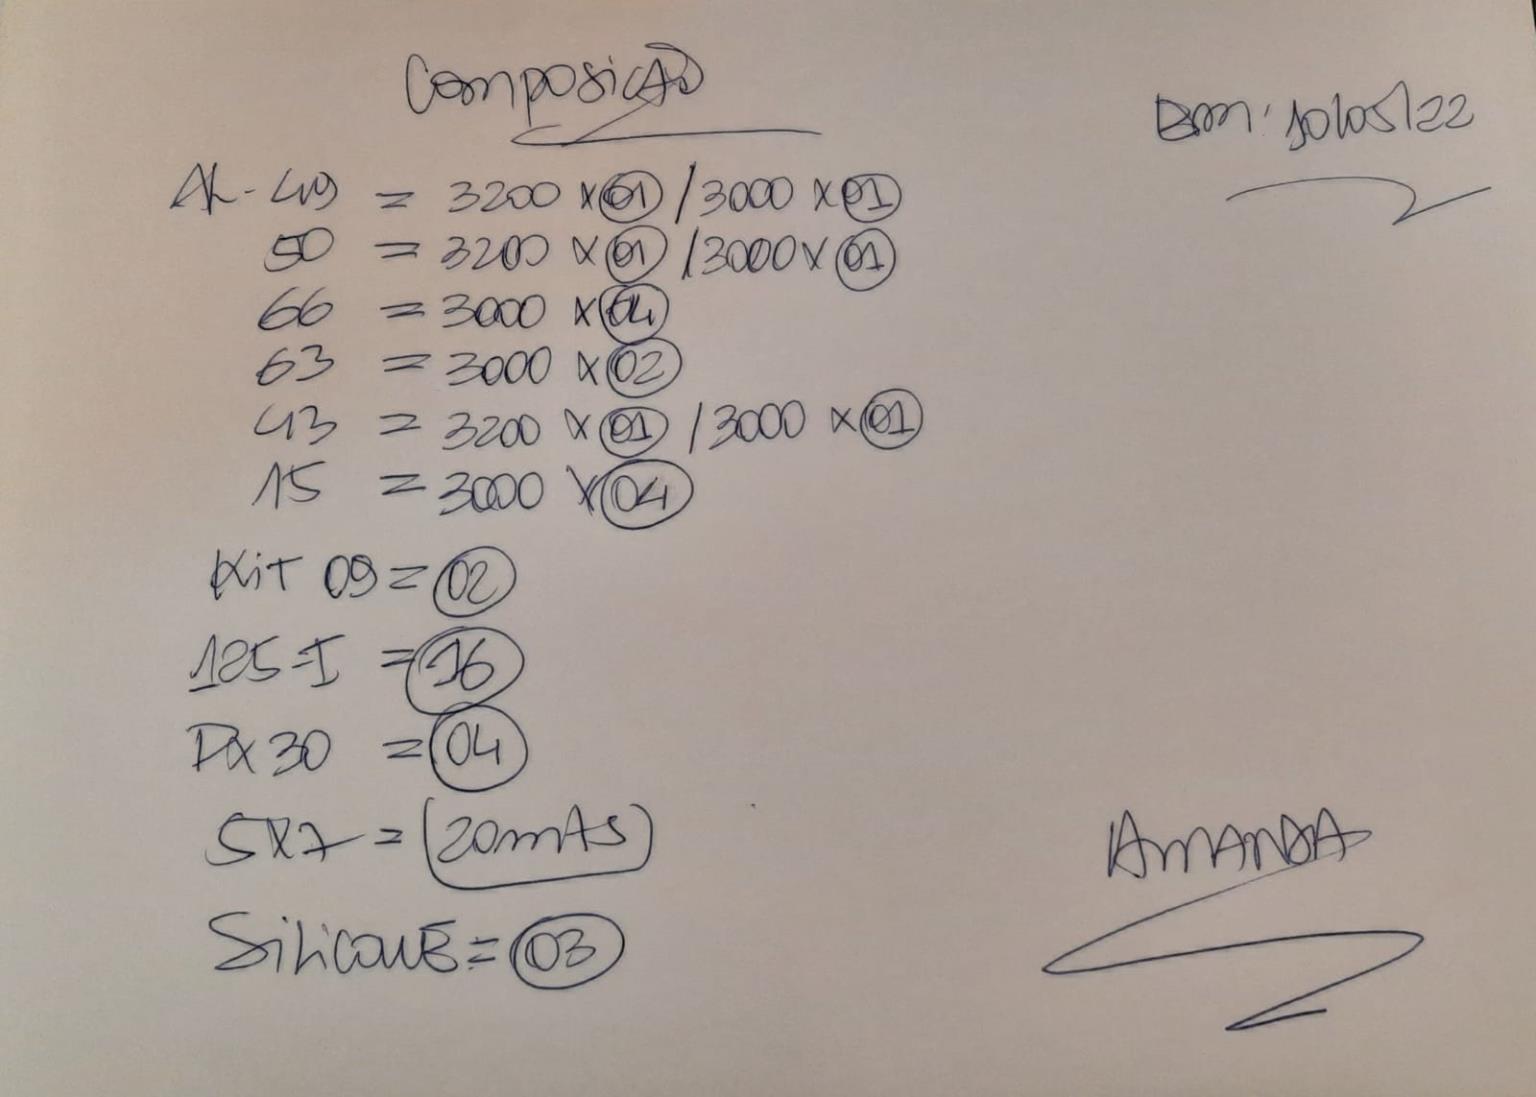 Composição
Bm: 10/05/22
AL-49 = 3200 x 01 / 3000 x 01
50 = 3200 x 01 / 3000 x 01
66 = 3000 x 04
63 = 3000 x 02
43 = 3200 x 01 / 3000 x 01
15 = 3000 x 04
Kit 09 = 02
125-I = 16
PX 30 = 04
5x7 = 20mts
Silicone = 03
Amanda